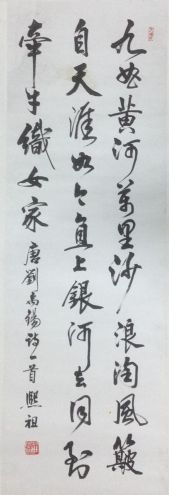 九曲黃河萬里沙浪淘風簸
自天涯如今直上銀河去同到
牽牛織女家
唐劉禹錫詩一首熙祖